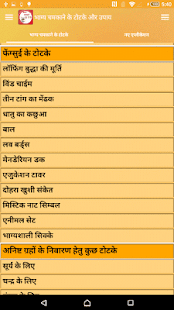 9:40
भाग्य चमकाने के टोटके और उपाय
भाग्य चमकाने के टोटके
फेंगसुई के टोटके
लॉफिंग बुद्धा की मूर्ति
विंड चाईम
तीन टांग का मेंढक
धातु का कछुआ
बाल
लव बर्ड्स
मैनडेरियन डक
एजुकेशन टावर
दोहरा खुशी संकेत
मिस्टिक नाट सिम्बल
एनीमल सेट
भाग्यशाली सिक्के
अनिष्ट ग्रहों के निवारण हेतु कुछ टोटके
सूर्य के लिए
चन्द्र के लिए